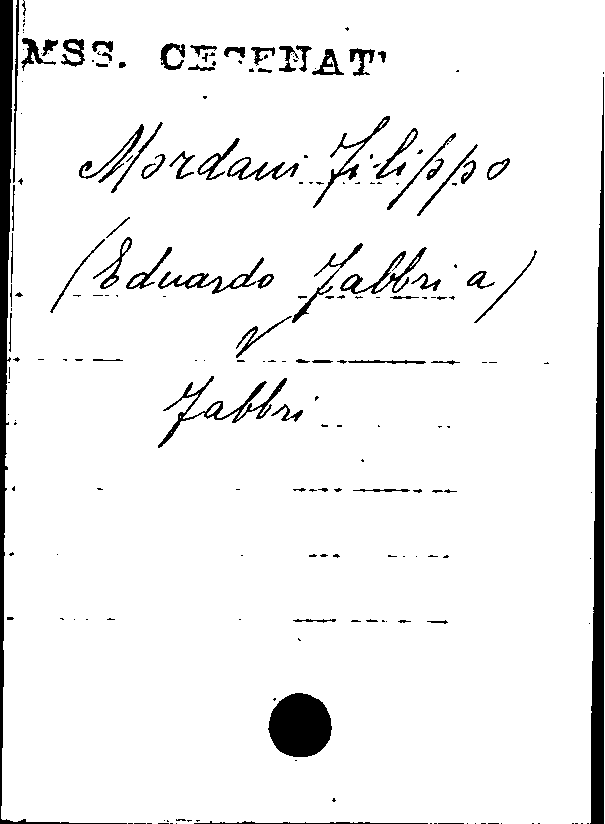 MSS. CESENATI
Mordani Filippo
(Eduardo Fabbri a)
V
Fabbri